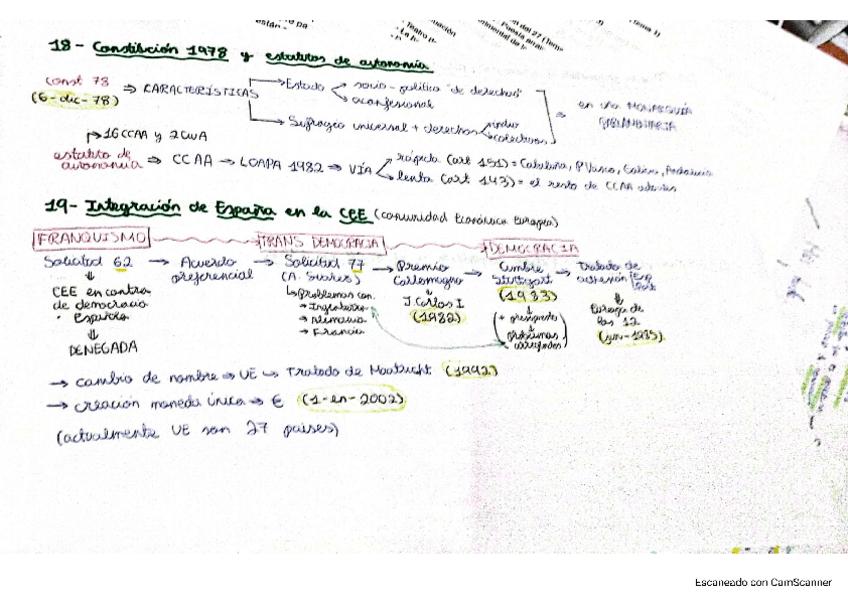 18- Constitución 1978 y estatutos de autonomía
Const 78 ⇒ CARACTERÍSTICAS → Estado < socio-político "de derecho"
(6-dic-78) aconfesional
→ Sufragio universal + derechos < indiv
colectivos
⇒ en una MONARQUÍA
PARLAMENTARIA
→ 16 CCAA y 2
estatuto de autonomía ⇒ CCAA → LOAPA 1982 ⇒ VÍA < rápida (art 151) = Cataluña, P Vasco, Galicia, Andalucía
lenta (art 143) = el resto de CCAA
19- Integración de España en la CEE (Comunidad Económica Europea)
FRANQUISMO TRANS DEMOCRACIA DEMOCRACIA
Solicitud 62 → Acuerdo preferencial → Solicitud 77 (A. Suárez) → Premio Carlomagno → Cumbre Stuttgart (1983) → Tratado de adhesión
CEE en contra de democracia España
DENEGADA
↳ Problemas con:
→ Inglaterra
→ Alemania
→ Francia
J. Carlos I
(1982)
(+ presupuesto
problemas
Europa de
los 12
1985)
→ cambio de nombre ⇒ UE → Tratado de Maatricht (1992)
→ creación moneda única ⇒ € (1-en-2002)
(actualmente UE son 27 países)
Escaneado con CamScanner